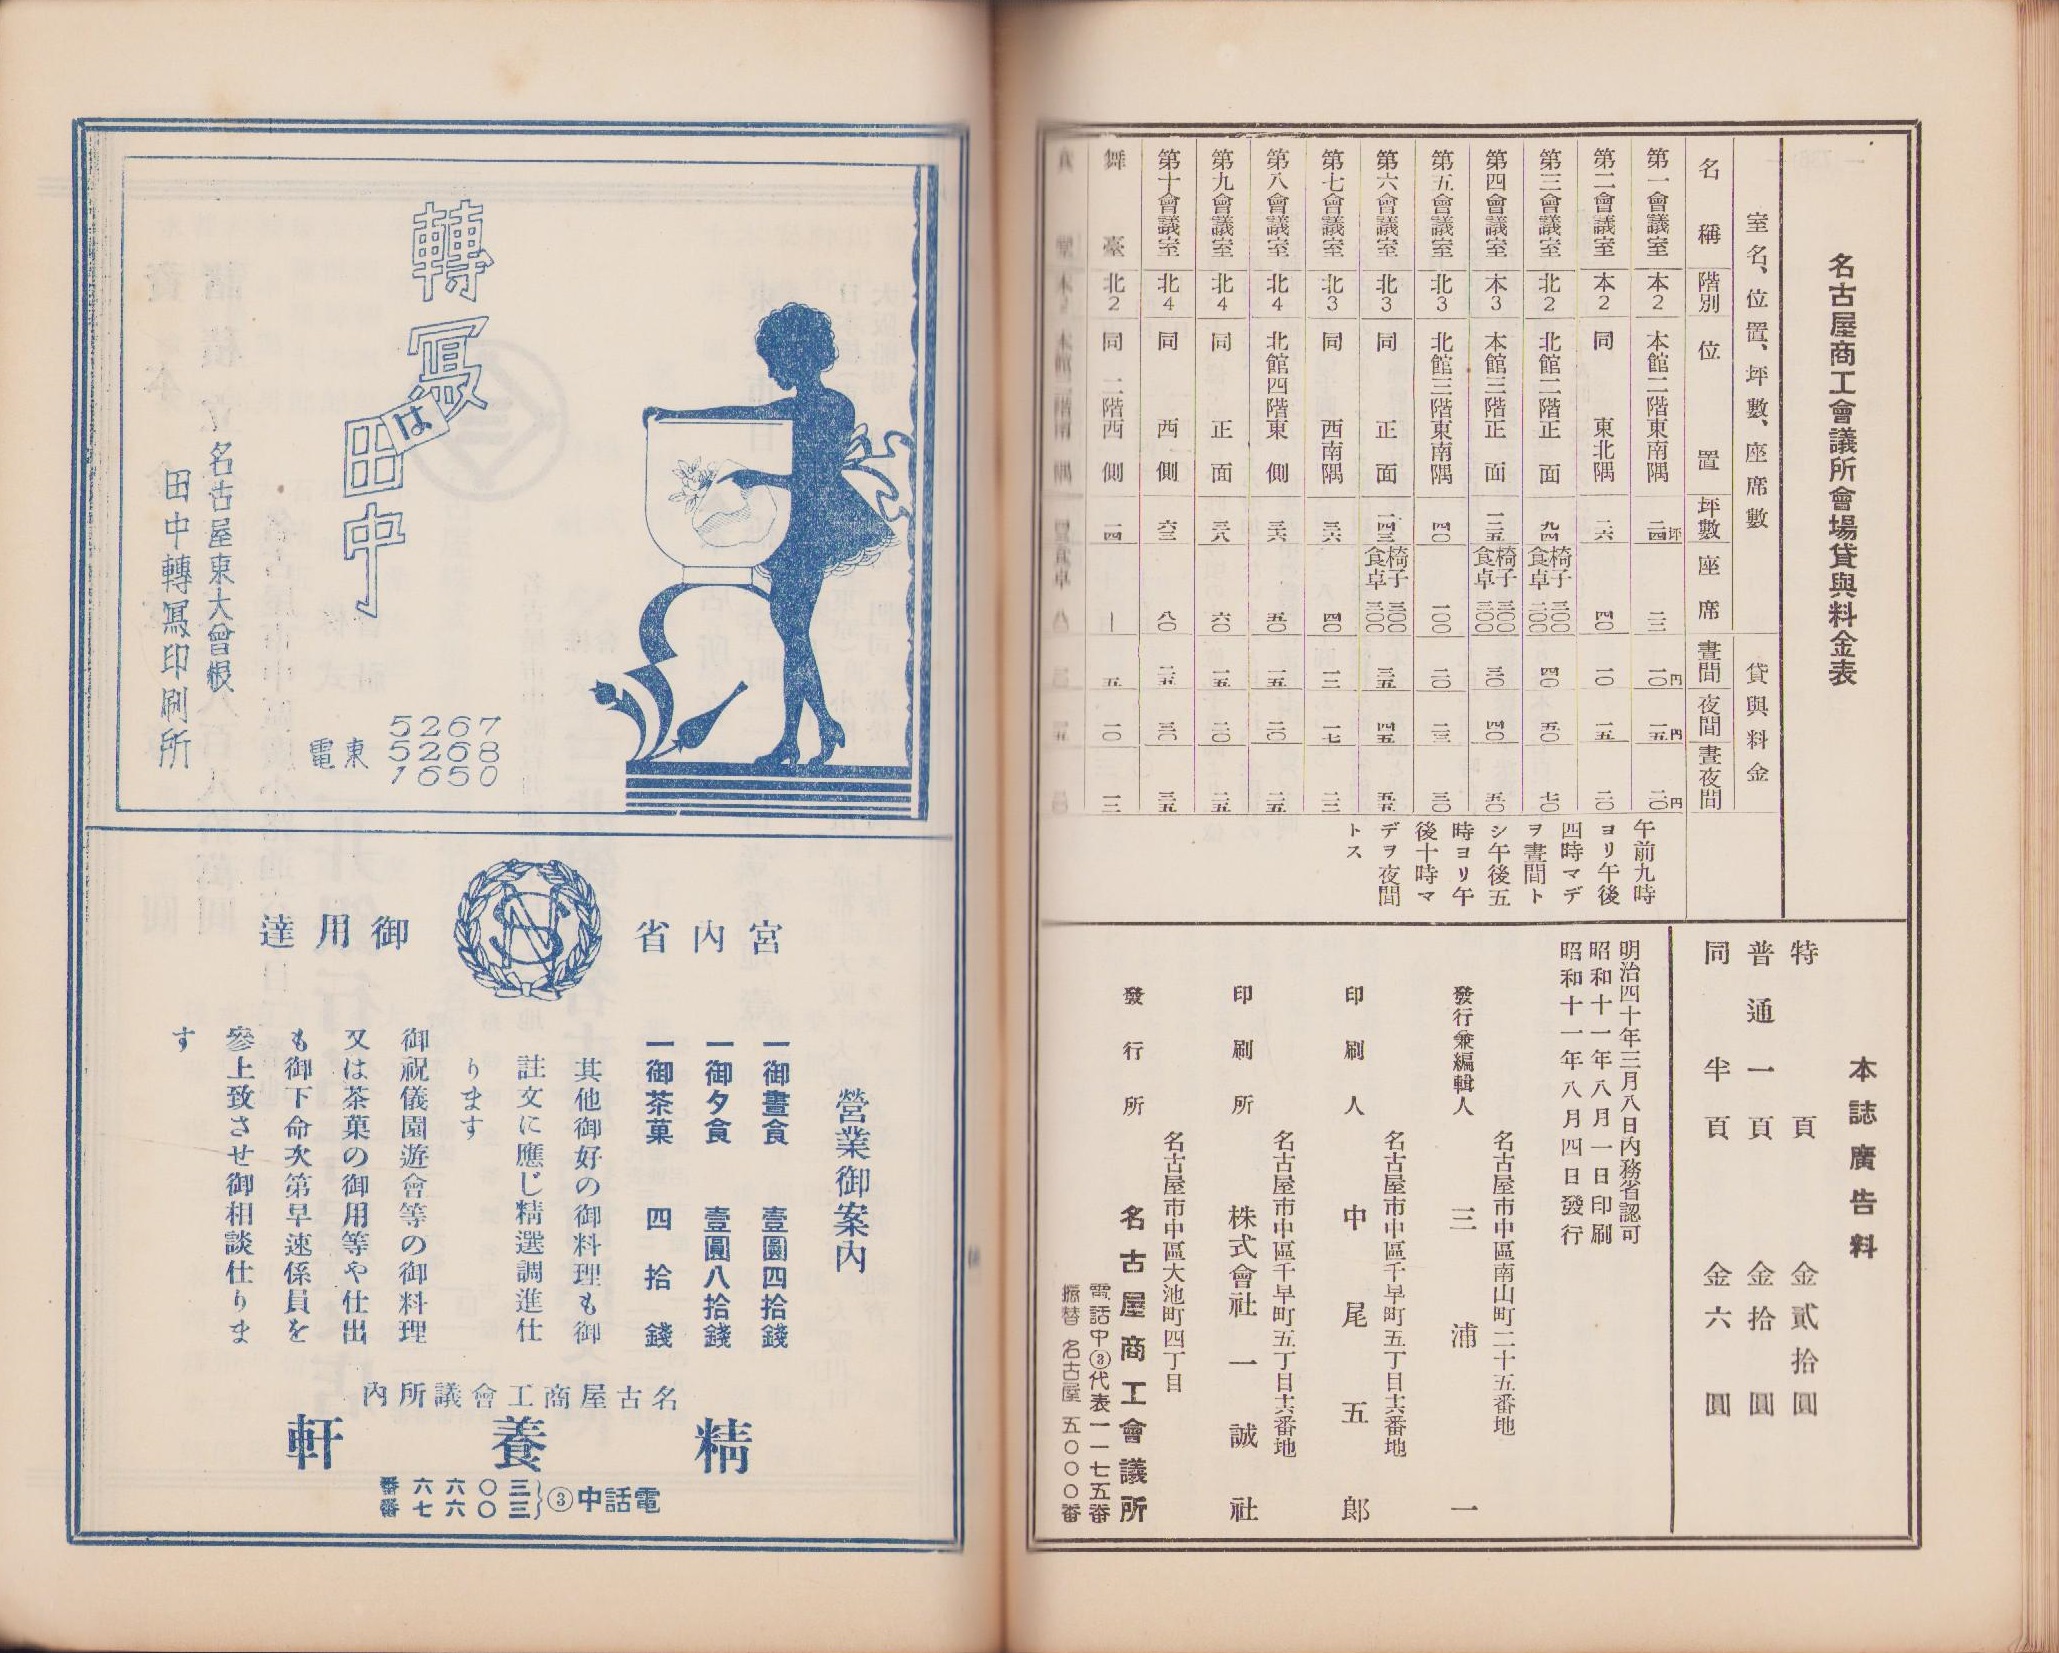 名古屋商工會議所會場貸與料金表
室名、位置、坪數、座席數
貸與料金
名稱 階別 位置 坪數 座席 晝間 夜間 晝夜間
第一會議室 本2 本館二階東南隅 二四坪 三二 一〇円 一五円 二〇円
第二會議室 本2 同 東北隅 二六 四〇 一〇 一五 二〇
第三會議室 北2 北館二階正面 九四 椅子三〇〇 食卓二〇〇 四〇 五〇 七〇
第四會議室 本3 本館三階正面 一三五 椅子三〇〇 食卓三〇〇 三〇 四〇 五〇
第五會議室 北3 北館三階東南隅 四〇 一〇〇 二〇 二三 三〇
第六會議室 北3 同 正面 一四三 椅子三〇〇 食卓三〇〇 三五 四五 五五
第七會議室 北3 同 西南隅 三六 四〇 一二 一七 二二
第八會議室 北4 北館四階東側 三六 五〇 一五 二〇 二五
第九會議室 北4 同 正面 三八 六〇 一五 二〇 二五
第十會議室 北4 同 西側 六三 八〇 二五 三〇 三五
舞臺 北2 同 二階西側 一四 ― 五 一〇 一二
午前九時
ヨリ午後
四時マデ
ヲ晝間ト
シ午後五
時ヨリ午
後十時マ
デヲ夜間
トス
本誌廣告料
特頁 金貳拾圓
普通一頁 金拾圓
同半頁 金六圓
明治四十年三月八日內務省認可
昭和十一年八月一日印刷
昭和十一年八月四日發行
名古屋市中區南山町二十五番地
發行兼編輯人 三浦一
名古屋市中區千早町五丁目十六番地
印刷人 中尾五郎
名古屋市中區千早町五丁目十六番地
印刷所 株式會社一誠社
名古屋市中區大池町四丁目
發行所 名古屋商工會議所
電話中③代表一一七五番
振替名古屋五〇〇〇番
轉寫は田中
名古屋東大曾根
田中轉寫印刷所
電東 5267
5268
1650
宮內省 御用達
NS
營業御案內
一御晝食 壹圓四拾錢
一御夕食 壹圓八拾錢
一御茶菓 四拾錢
其他御好の御料理も御
註文に應じ精選調進仕
ります
御祝儀園遊會等の御料理
又は茶菓の御用等や仕出
も御下命次第早速係員を
參上致させ御相談仕りま
す
名古屋商工會議所內
精養軒
電話中③
三〇六六番
三〇六七番